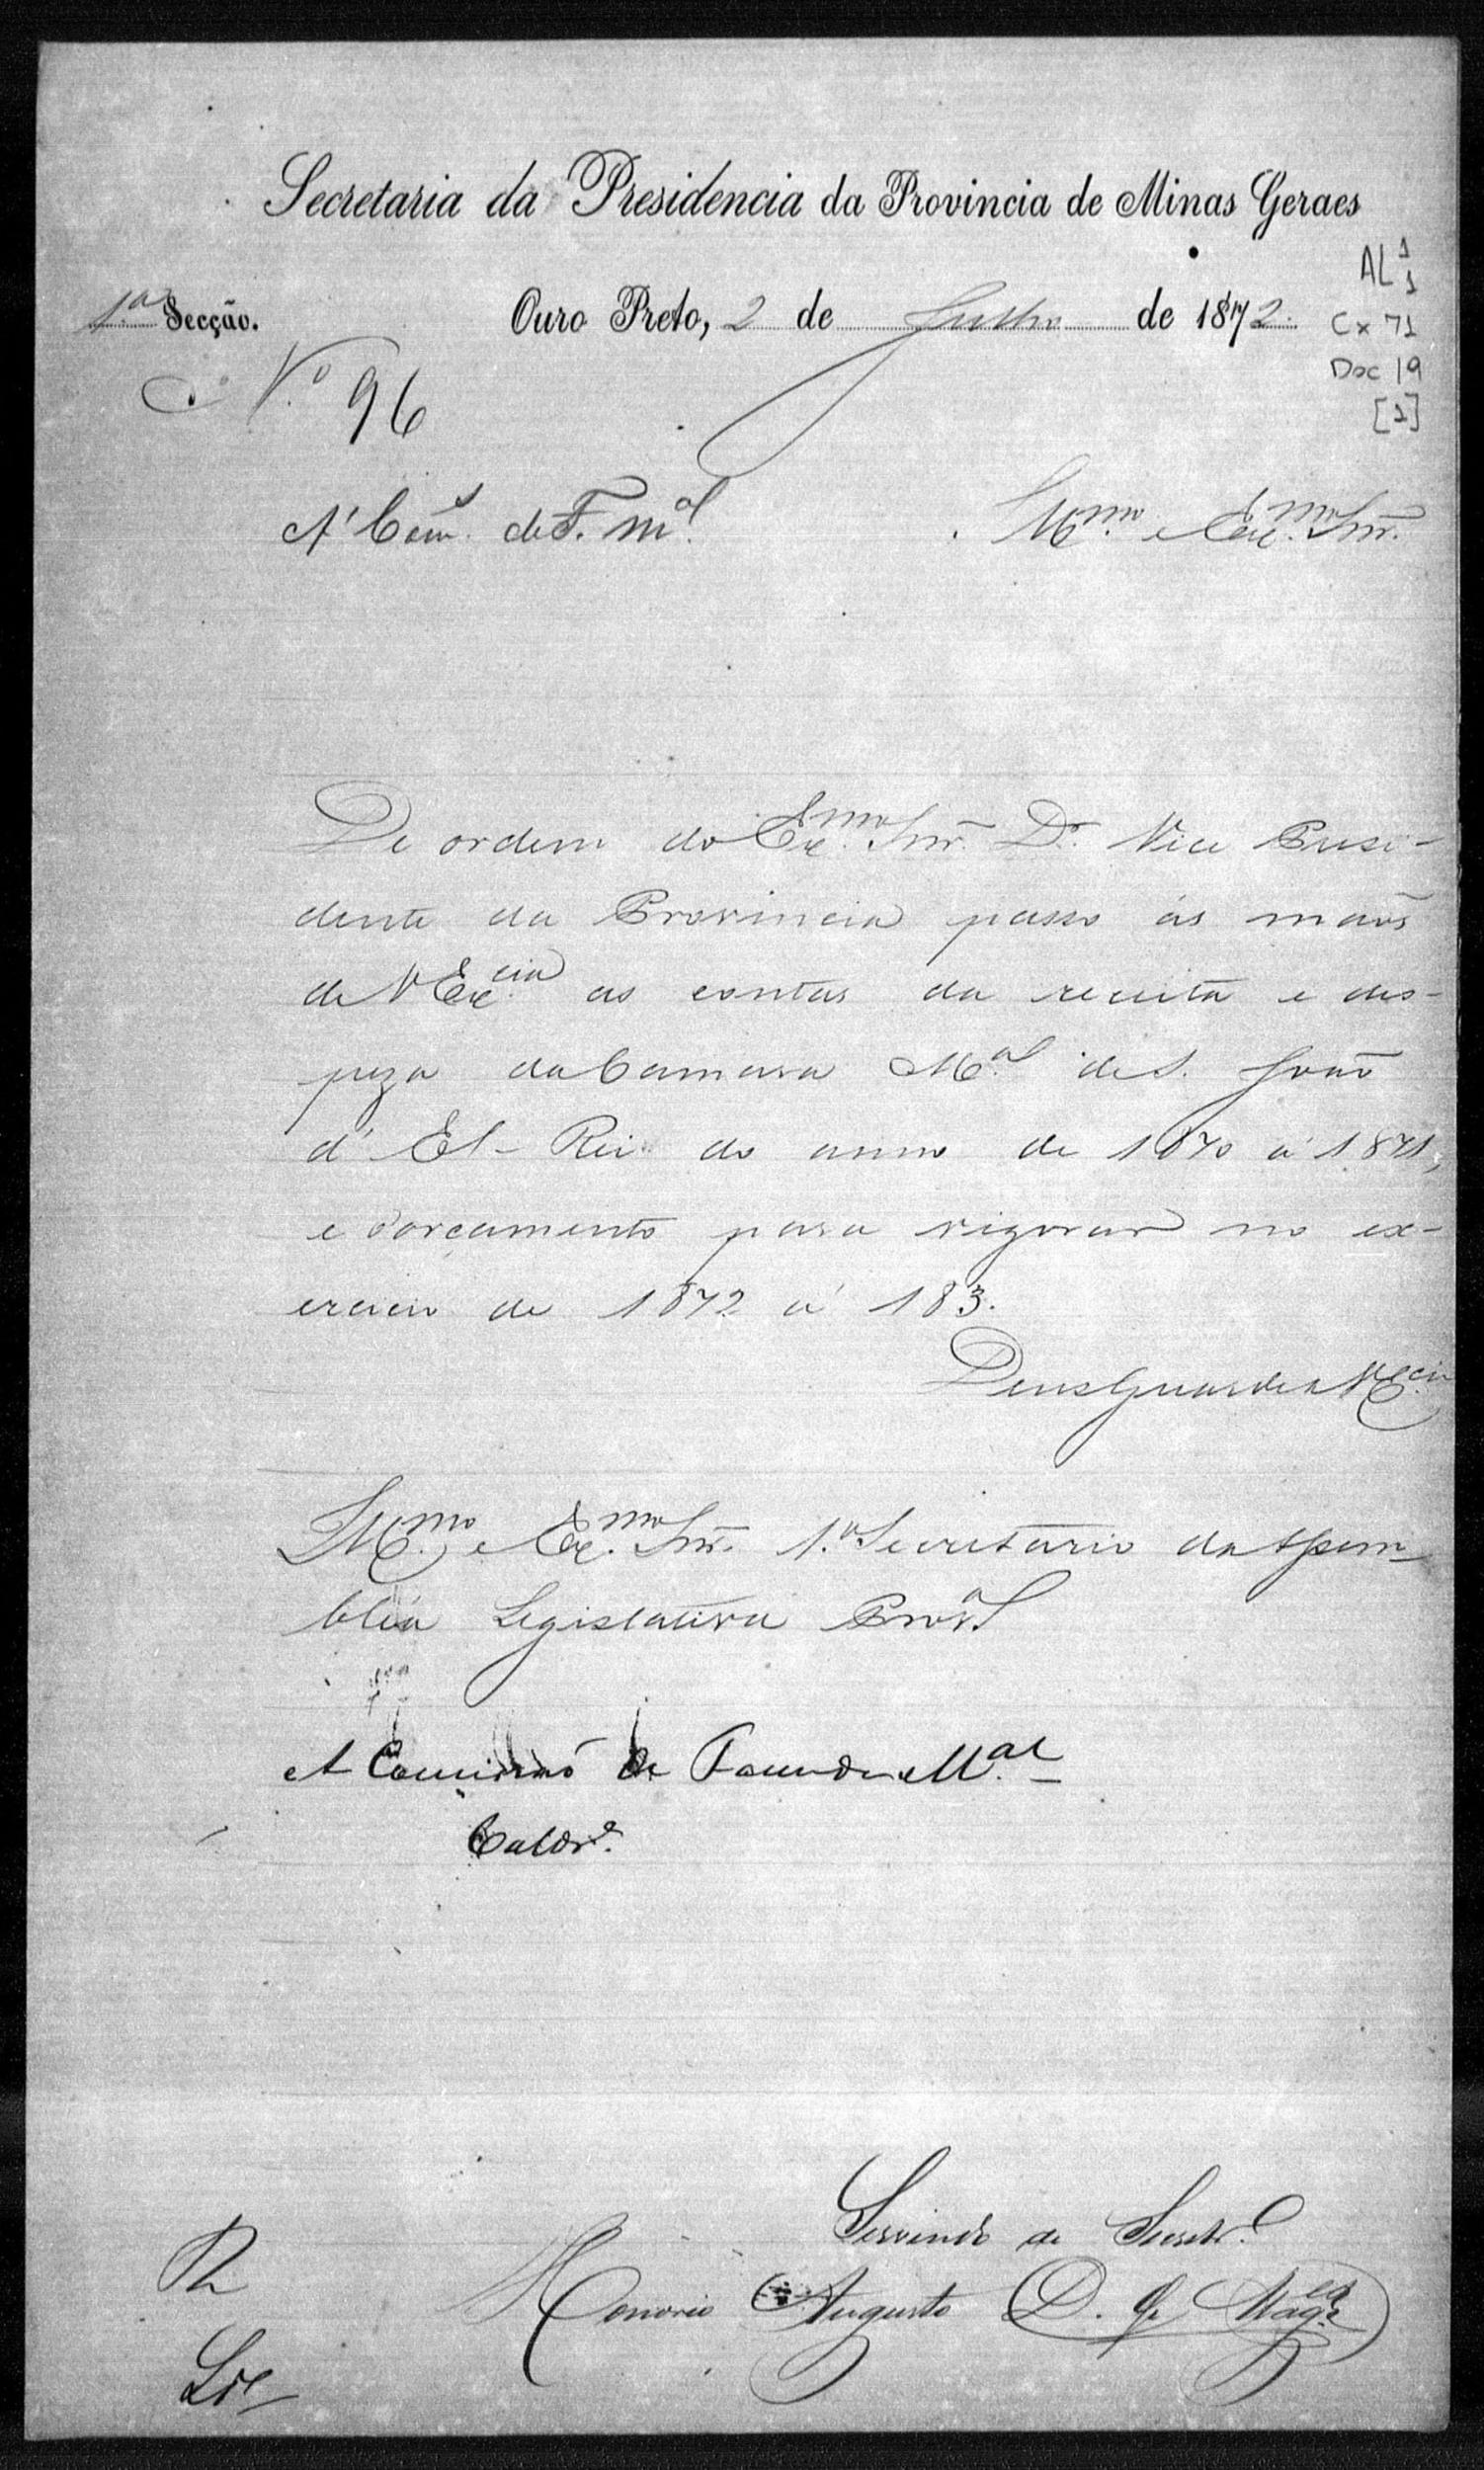 Secretaria da Presidencia da Provincia de Minas Geraes
AL 1
1
1.ª Secção.
Ouro Preto, 2 de Julho de 1872.
Cx 71
Doc 19
[1]
N.º 96
A' Com.s de F. M.al
Ill.mo e Exc.mo Snr.
De ordem do Exc.mo Snr. Dr. Vice Presi-
dente da Provincia passo ás mãos
de V Exc.cia as contas da receita e des-
peza da Camara M.al de S. João
d'El-Rei do anno de 1870 á 1871,
e o orçamento para vigorar no ex-
ercicio de 1872 á 183.
Deus Guarde a V Ex.cia
Ill.mo e Exc.mo Snr. 1.º Secretario da Assem-
bléa Legislativa Prov.al
A Commissaõ de Fazenda M.al
Servindo de Secretr.º
Honorio Augusto D. de Mag.es